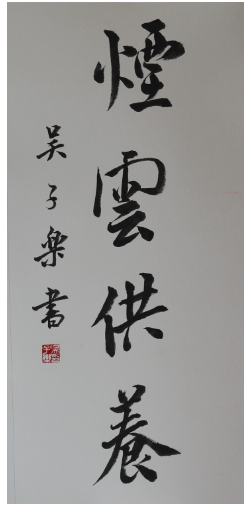 煙雲供養
吴子樂書